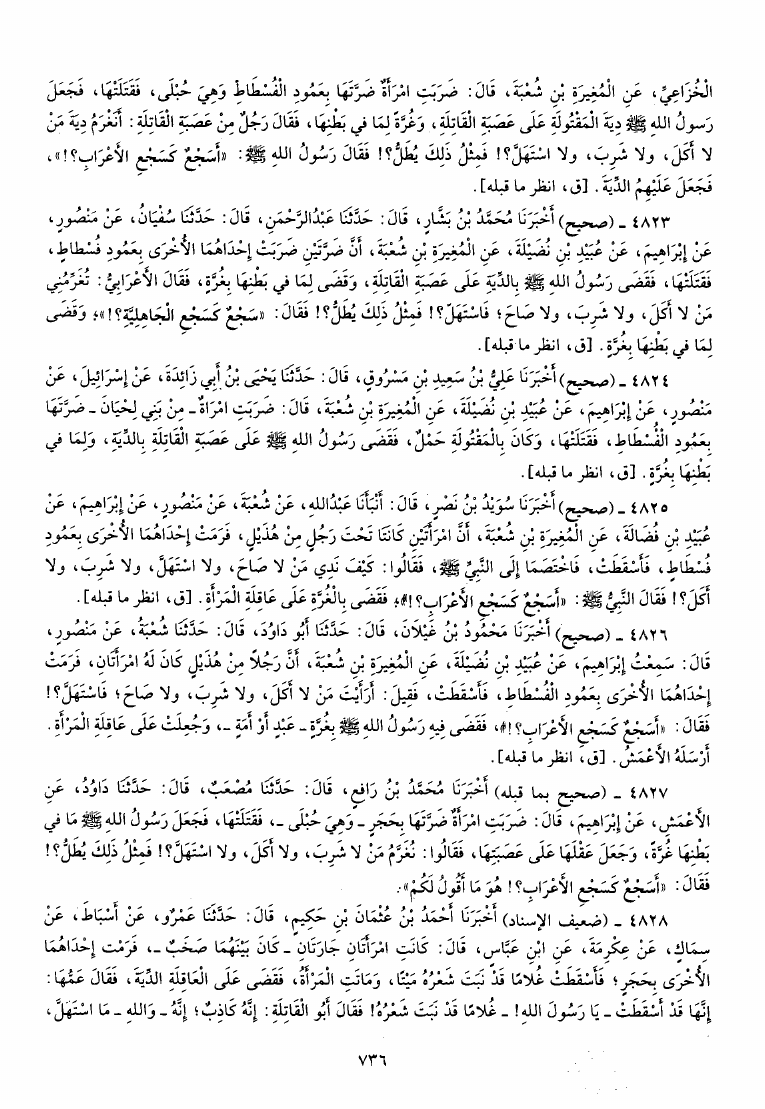 الْخُزَاعِيِّ، عَنِ الْمُغِيرَةِ بْنِ شُعْبَةَ، قَالَ: ضَرَبَتِ امْرَأَةٌ ضَرَّتَهَا بِعَمُودِ الْفُسْطَاطِ وَهِيَ حُبْلَى، فَقَتَلَتْهَا، فَجَعَلَ
رَسولُ اللهِ ﷺ دِيَةَ الْمَقْتُولَةِ عَلَى عَصَبَةِ الْقَاتِلَةِ، وَغُرَّةً لِمَا في بَطْنِهَا، فَقَالَ رَجُلٌ مِنْ عَصَبَةِ الْقَاتِلَةِ: أَنَغْرَمُ دِيَةَ مَنْ
لا أَكَلَ، ولا شَرِبَ، ولا اسْتَهَلَّ؟! فَمِثْلُ ذَلِكَ يُطَلُّ؟! فَقَالَ رَسُولُ اللهِ ﷺ: «أَسَجْعٌ كَسَجْعِ الأَعْرَابِ؟!»،
فَجَعَلَ عَلَيْهِمُ الدِّيَةَ. [ق، انظر ما قبله].
٤٨٢٣ ـ (صحيح) أَخْبَرَنَا مُحَمَّدُ بْنُ بَشَّارٍ، قَالَ: حَدَّثَنَا عَبْدُالرَّحْمَنِ، قَالَ: حَدَّثَنَا سُفْيَانُ، عَنْ مَنْصُورٍ،
عَنْ إِبْرَاهِيمَ، عَنْ عُبَيْدِ بْنِ نُضَيْلَةَ، عَنِ الْمُغِيرَةِ بْنِ شُعْبَةَ، أَنَّ ضَرَّتَيْنِ ضَرَبَتْ إِحْدَاهُمَا الأُخْرَى بِعَمُودِ فُسْطاطٍ،
فَقَتَلَتْهَا، فَقَضَى رَسُولُ اللهِ ﷺ بِالدِّيَةِ عَلَى عَصَبَةِ الْقَاتِلَةِ، وَقَضَى لِمَا في بَطْنِهَا بِغُرَّةٍ، فَقَالَ الأَعْرَابِيُّ: تُغَرِّمُنِي
مَنْ لا أَكَلَ، ولا شَرِبَ، ولا صَاحَ؛ فَاسْتَهَلّ؟! فَمِثْلُ ذَلِكَ يُطَلُّ؟! فَقَالَ: «سَجْعٌ كَسَجْعِ الْجَاهِلِيَّةِ؟!»؛ وَقَضَى
لِمَا في بَطْنِهَا بِغُرَّةٍ. [ق، انظر ما قبله].
٤٨٢٤ ـ (صحيح) أَخْبَرَنَا عَلِيُّ بْنُ سَعِيدِ بْنِ مَسْرُوقٍ، قَالَ: حَدَّثَنَا يَحْيَى بْنُ أَبِي زَائِدَةَ، عَنْ إِسْرَائِيلَ، عَنْ
مَنْصُورٍ، عَنْ إِبْرَاهِيمَ، عَنْ عُبَيْدِ بْنِ نُضَيْلَةَ، عَنِ الْمُغِيرَةِ بْنِ شُعْبَةَ، قَالَ: ضَرَبَتِ امْرَأةٌ ـ مِنْ بَنِي لِحْيَانَ ـ ضَرَّتَهَا
بِعَمُودِ الْفُسْطَاطِ، فَقَتَلَتْهَا، وَكَانَ بِالْمَقْتُولَةِ حَمْلٌ، فَقَضَى رَسُولُ اللهِ ﷺ عَلَى عَصَبَةِ الْقَاتِلَةِ بِالدِّيَةِ، وَلِمَا في
بَطْنِهَا بِغُرَّةٍ. [ق، انظر ما قبله].
٤٨٢٥ ـ (صحيح) أَخْبَرَنَا سُوَيْدُ بْنُ نَصْرٍ، قَالَ: أَنْبَأَنَا عَبْدُاللهِ، عَنْ شُعْبَةَ، عَنْ مَنْصُورٍ، عَنْ إِبْرَاهِيمَ، عَنْ
عُبَيْدِ بْنِ فُضَالَةَ، عَنِ الْمُغِيرَةِ بْنِ شُعْبَةَ، أَنَّ امْرَأَتَيْنِ كَانَتَا تَحْتَ رَجُلٍ مِنْ هُذَيْلٍ، فَرَمَتْ إِحْدَاهُمَا الأُخْرَى بِعَمُودِ
فُسْطَاطٍ، فَأَسْقَطَتْ، فَاخْتَصَمَا إِلَى النَّبِيِّ ﷺ، فَقَالُوا: كَيْفَ نَدِي مَنْ لا صَاحَ، ولا اسْتَهَلَّ، ولا شَرِبَ، ولا
أَكَلَ؟! فَقَالَ النَّبِيُّ ﷺ: «أَسَجْعٌ كَسَجْعِ الأَعْرَابِ؟!»؛ فَقَضَى بِالْغُرَّةِ عَلَى عَاقِلَةِ الْمَرْأَةِ. [ق، انظر ما قبله].
٤٨٢٦ ـ (صحيح) أَخْبَرَنَا مَحْمُودُ بْنُ غَيْلَانَ، قَالَ: حَدَّثَنَا أَبُو دَاوُدَ، قَالَ: حَدَّثَنَا شُعْبَةُ، عَنْ مَنْصُورٍ،
قَالَ: سَمِعْتُ إِبْرَاهِيمَ، عَنْ عُبَيْدِ بْنِ نُضَيْلَةَ، عَنِ الْمُغِيرَةِ بْنِ شُعْبَةَ، أَنَّ رَجُلاً مِنْ هُذَيْلٍ كَانَ لَهُ امْرَأَتَانِ، فَرَمَتْ
إِحْدَاهُمَا الأُخْرَى بِعَمُودِ الْفُسْطَاطِ، فَأَسْقَطَتْ، فَقِيلَ: أَرَأَيْتَ مَنْ لا أَكَلَ، ولا شَرِبَ، ولا صَاحَ؛ فَاسْتَهَلَّ؟!
فَقَالَ: «أَسَجْعٌ كَسَجْعِ الأَعْرَابِ؟!»، فَقَضَى فِيهِ رَسُولُ اللهِ ﷺ بِغُرَّةٍ ـ عَبْدٍ أَوْ أَمَةٍ ـ، وَجُعِلَتْ عَلَى عَاقِلَةِ الْمَرْأَةِ.
أَرْسَلَهُ الأَعْمَشُ. [ق، انظر ما قبله].
٤٨٢٧ ـ (صحيح بما قبله) أَخْبَرَنَا مُحَمَّدُ بْنُ رَافِعٍ، قَالَ: حَدَّثَنَا مُصْعَبٌ، قَالَ: حَدَّثَنَا دَاوُدُ، عَنِ
الأَعْمَشِ، عَنْ إِبْرَاهِيمَ، قَالَ: ضَرَبَتِ امْرَأَةٌ ضَرَّتَهَا بِحَجَرٍ ـ وَهِيَ حُبْلَى ـ، فَقَتَلَتْهَا، فَجَعَلَ رَسُولُ اللهِ ﷺ مَا في
بَطْنِهَا غُرَّةً، وَجَعَلَ عَقْلَهَا عَلَى عَصَبَتِهَا، فَقَالُوا: نُغَرَّمُ مَنْ لا شَرِبَ، ولا أَكَلَ، ولا اسْتَهَلَّ؟! فَمِثْلُ ذَلِكَ يُطَلُّ؟!
فَقَالَ: «أَسَجْعٌ كَسَجْعِ الأَعْرَابِ؟! هُوَ مَا أَقُولُ لَكُمْ».
٤٨٢٨ ـ (ضعيف الإسناد) أَخْبَرَنَا أَحْمَدُ بْنُ عُثْمَانَ بْنِ حَكِيمٍ، قَالَ: حَدَّثَنَا عَمْرٌو، عَنْ أَسْبَاطَ، عَنْ
سِمَاكٍ، عَنْ عِكْرِمَةَ، عَنِ ابْنِ عَبَّاسٍ، قَالَ: كَانَتِ امْرَأَتَانِ جَارَتَانِ ـ كَانَ بَيْنَهُمَا صَخَبٌ ـ، فَرَمَت إِحْدَاهُمَا
الأُخْرَى بِحَجَرٍ؛ فَأَسْقَطَتْ غُلامًا قَدْ نَبَتَ شَعْرُهُ مَيْتًا، وَمَاتَتِ الْمَرْأَةُ، فَقَضَى عَلَى الْعَاقِلَةِ الدِّيَةَ، فَقَالَ عَمُّهَا:
إِنَّهَا قَدْ أَسْقَطَتْ ـ يَا رَسُولَ اللهِ! ـ غُلامًا قَدْ نَبَتَ شَعْرُهُ! فَقَالَ أَبُو الْقَاتِلَةِ: إِنَّهُ كَاذِبٌ؛ إِنَّهُ ـ وَاللهِ ـ مَا اسْتَهَلَّ،
٧٣٦